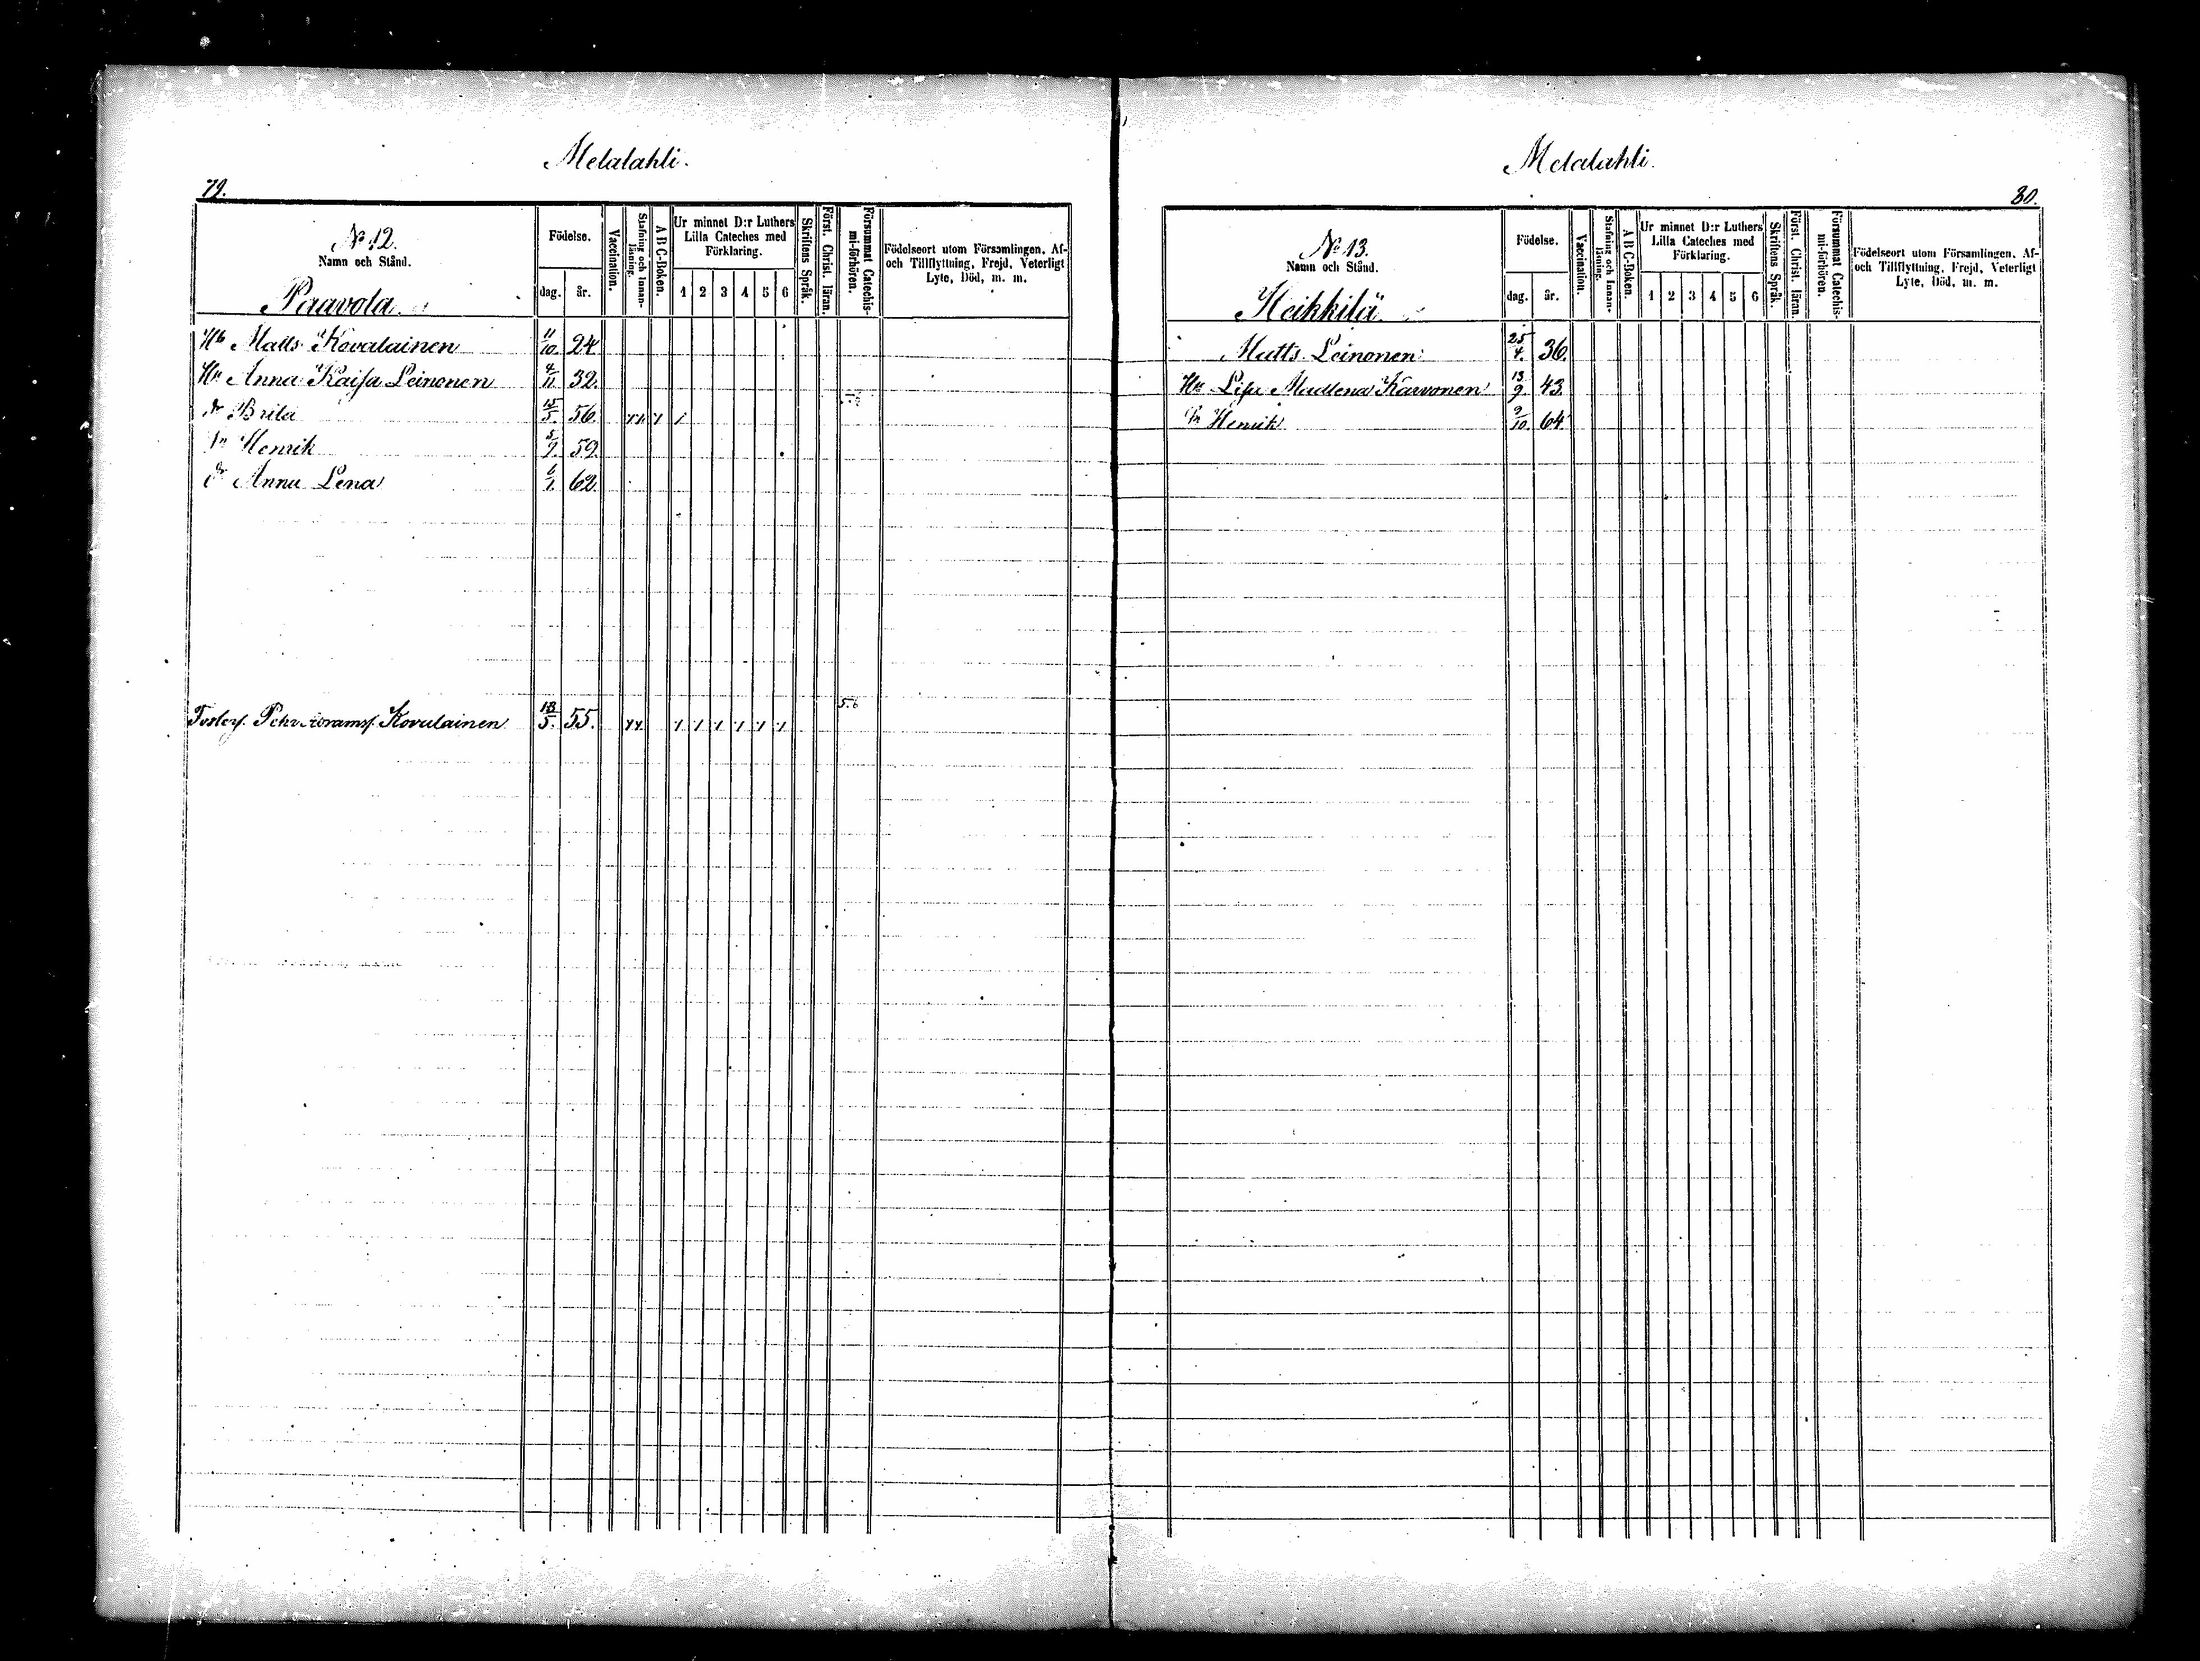 Melalahti.
79.
No 12.
Namn och Stånd.
Födelse.
dag. år.
Vaccination.
Stafning och Innan-
läsning.
A B C-Boken.
Ur minnet D:r Luthers
Lilla Cateches med
Förklaring.
1 2 3 4 5 6
Skriftens Språk.
Först. Christ. läran.
Försummat Catechis-
mi-förhören.
Födelseort utom Församlingen, Af-
och Tillflyttning, Frejd, Veterligt
Lyte, Död, m. m.
Paavola
Hb Matts Kovalainen 11/10. 24
Hu Anna Kaisa Leinonen 4/11. 32.
dr Brita 15/5. 56.
Sn Henrik 5/9. 59
dr Anna Lena 6/1. 62.
Pehr Abramsf. Kovalainen 13/5. 55. 5.6
Melalahti.
80.
No 13.
Namn och Stånd.
Födelse.
dag. år.
Vaccination.
Stafning och Innan-
läsning.
A B C-Boken.
Ur minnet D:r Luthers
Lilla Cateches med
Förklaring.
1 2 3 4 5 6
Skriftens Språk.
Först. Christ. läran.
Försummat Catechis-
mi-förhören.
Födelseort utom Församlingen, Af-
och Tillflyttning, Frejd, Veterligt
Lyte, Död, m. m.
Heikkilä
Matts Leinonen 25/4. 36.
Hu Lisa Madlena Karvonen 13/9 43.
Sn Henrik 9/10. 64.